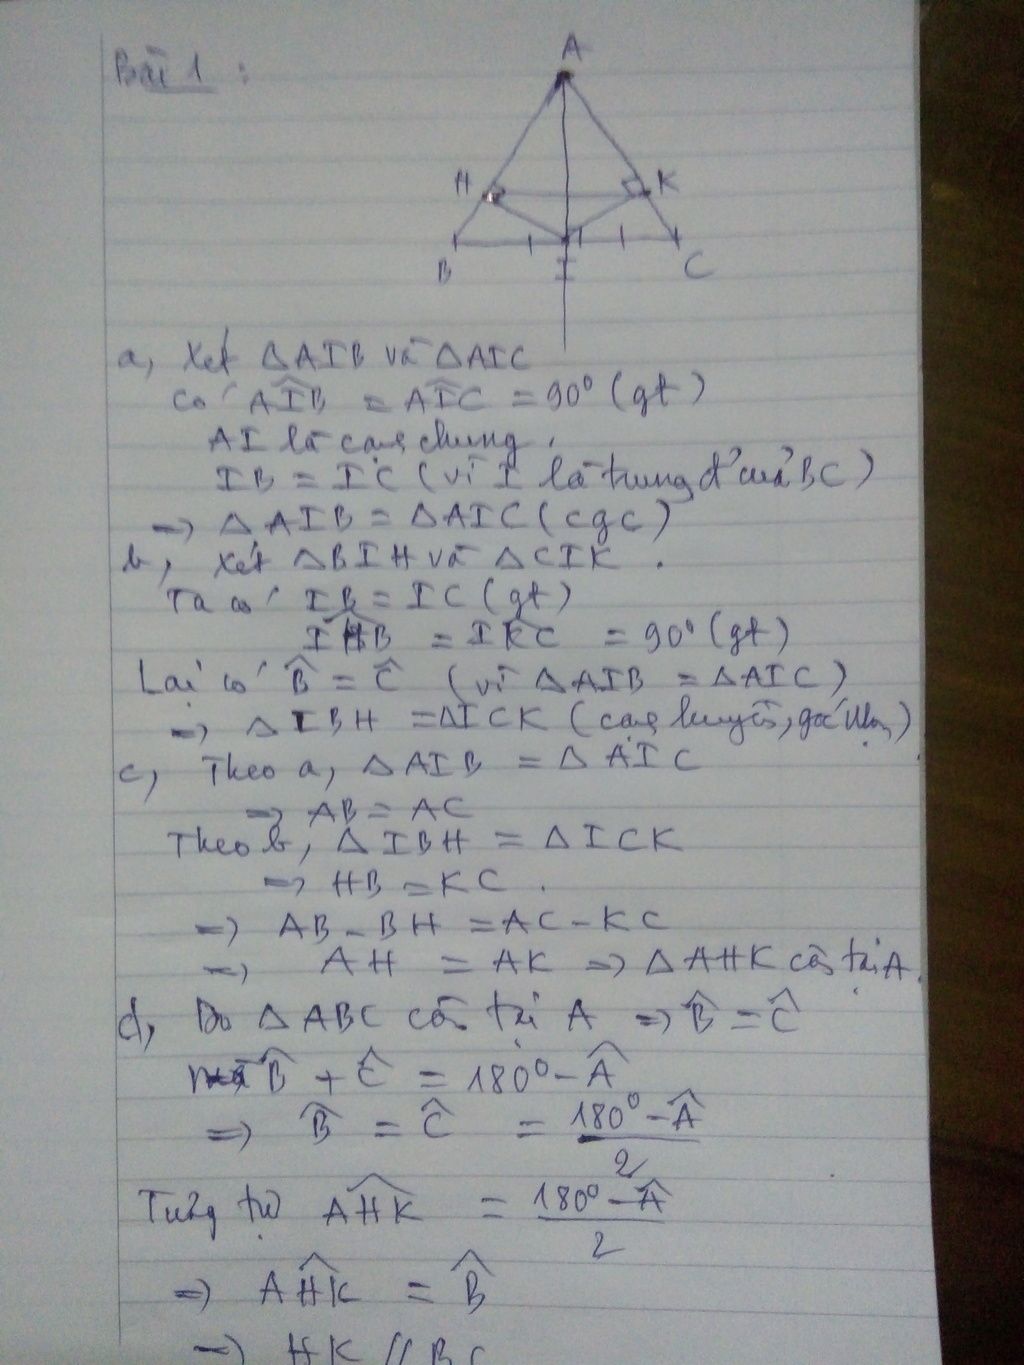 Bài 1 :
A
H
K
B
I
C
a, Xét ΔAIB và ΔAIC
có AIB̂ = AIĈ = 90° (gt)
AI là cạnh chung.
IB = IC (vì I là trung đ' của BC)
=> ΔAIB = ΔAIC (cgc)
b, Xét ΔBIH và ΔCIK .
Ta có IB = IC (gt)
IHB̂ = IKC = 90° (gt)
Lại có B̂ = Ĉ (vì ΔAIB = ΔAIC)
=> ΔIBH = ΔICK (cạnh huyền, góc nhọn)
c, Theo a, ΔAIB = ΔAIC
=> AB = AC
Theo b, ΔIBH = ΔICK
=> HB = KC .
=> AB - BH = AC - KC
=> AH = AK => ΔAHK cân tại A.
d, Do ΔABC cân tại A => B̂ = Ĉ
mà B̂ + Ĉ = 180° - Â
=> B̂ = Ĉ = (180° - Â)/2
Tương tự AĤK = (180° - Â)/2
=> AĤK = B̂
=> HK // BC